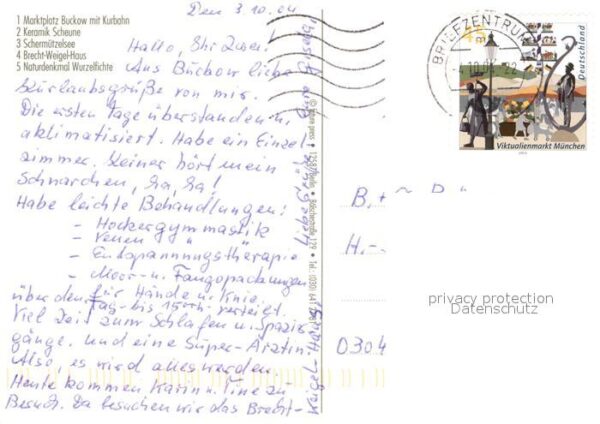 1 Marktplatz Buckow mit Kurbahn
2 Keramik Scheune
3 Schermützelsee
4 Brecht-Weigel-Haus
5 Naturdenkmal Wurzelfichte
Den 3.10.04
Hallo, Ihr Zwei!
Aus Buckow liebe
Urlaubsgrüße von mir.
Die ersten Tage überstanden u.
aklimatisiert. Habe ein Einzel-
zimmer. Keiner hört mein
Schnarchen, ha, ha!
Habe leichte Behandlungen:
- Hockergymnastik
- Venen "
- Entspannungstherapie
- Moor- u. Fangopackungen
für Hände u. Knie.
über den Tag - bis 15 Uhr verteigt.
Viel Zeit zum Schlafen u. Spazier
gänge. und eine Super-Ärztin.
Also, es wird alles werden.
Heute kommen Karin u. Tine zu
Besuch. Da besuchen wir das Brecht-
Weigel-Haus.
Liebe Grüße Eure
BRIEFZENTRUM
45
Deutschland
Viktualienmarkt München
B.
H.
0304
privacy protection
Datenschutz